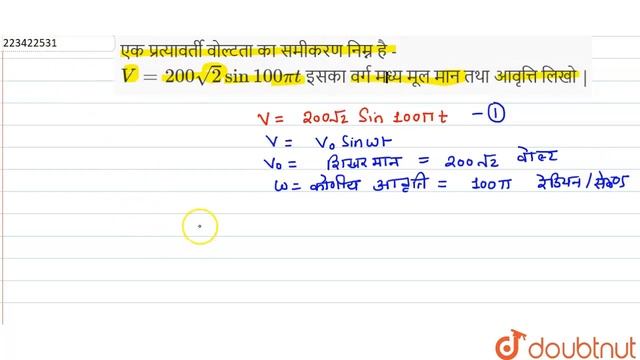 223422531
एक प्रत्यावर्ती वोल्टता का समीकरण निम्न है -
V = 200√2 sin 100πt इसका वर्ग माध्य मूल मान तथा आवृत्ति लिखो |
V = 200√2 Sin 100πt - ①
V = V₀ Sinωt
V₀ = शिखर मान = 200√2 वोल्ट
ω = कोणीय आवृति = 100π रेडियन/सेकण्ड
doubtnut